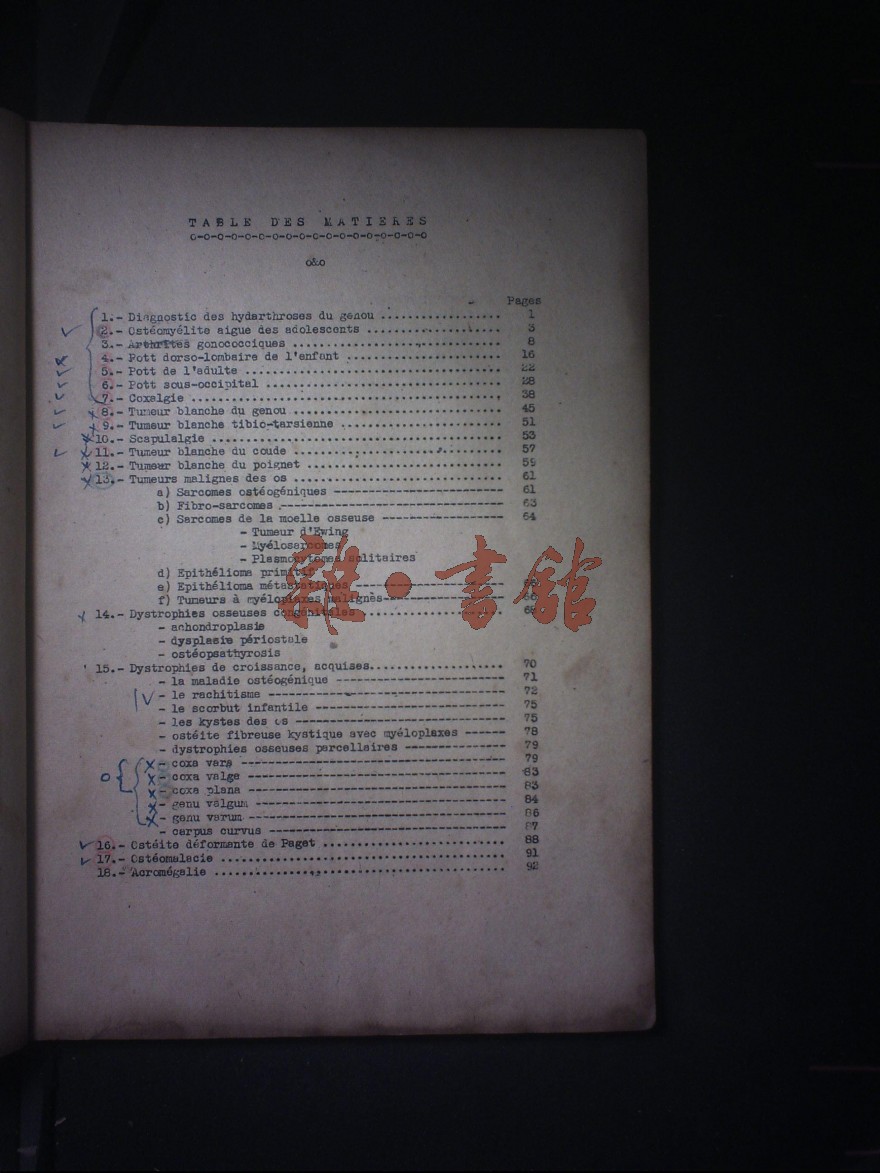 TABLE DES MATIERES
o-o-o-o-o-o-o-o-o-o-o-o-o-o-o-o-o-o
o&o
Pages
1.- Diagnostic des hydarthroses du genou .................. 1
2.- Ostéomyélite aigue des adolescents .................... 3
3.- Arthrites gonococciques ............................... 8
4.- Pott dorso-lombaire de l'enfant ....................... 16
5.- Pott de l'adulte ...................................... 22
6.- Pott sous-occipital ................................... 28
7.- Coxalgie .............................................. 38
8.- Tumeur blanche du genou ............................... 45
9.- Tumeur blanche tibio-tarsienne ........................ 51
10.- Scapulalgie .......................................... 53
11.- Tumeur blanche du coude .............................. 57
12.- Tumeur blanche du poignet ............................ 59
13.- Tumeurs malignes des os .............................. 61
a) Sarcomes ostéogéniques ------------------------- 61
b) Fibro-sarcomes --------------------------------- 63
c) Sarcomes de la moelle osseuse ------------------ 64
- Tumeur d'Ewing
- Myélosarcomes
- Plasmocytomes solitaires
d) Epithélioma primitif
e) Epithélioma métastatiques ----------------------
f) Tumeurs à myéloplaxes malignes-----------------
14.- Dystrophies osseuses congénitales ....................
- achondroplasie
- dysplasie périostale
- ostéopsathyrosis
15.- Dystrophies de croissance, acquises................... 70
- la maladie ostéogénique ------------------------- 71
- le rachitisme ----------------------------------- 72
- le scorbut infantile ---------------------------- 75
- les kystes des os ------------------------------- 75
- ostéite fibreuse kystique avec myéloplaxes ------ 78
- dystrophies osseuses parcellaires --------------- 79
- coxa vara --------------------------------------- 79
- coxa valga -------------------------------------- 83
- coxa plana -------------------------------------- 83
- genu valgum ------------------------------------- 84
- genu varum -------------------------------------- 86
- carpus curvus ----------------------------------- 87
16.- Ostéite déformante de Paget .......................... 88
17.- Ostéomalacie ......................................... 91
18.- Acromégalie .......................................... 92
雜·書館